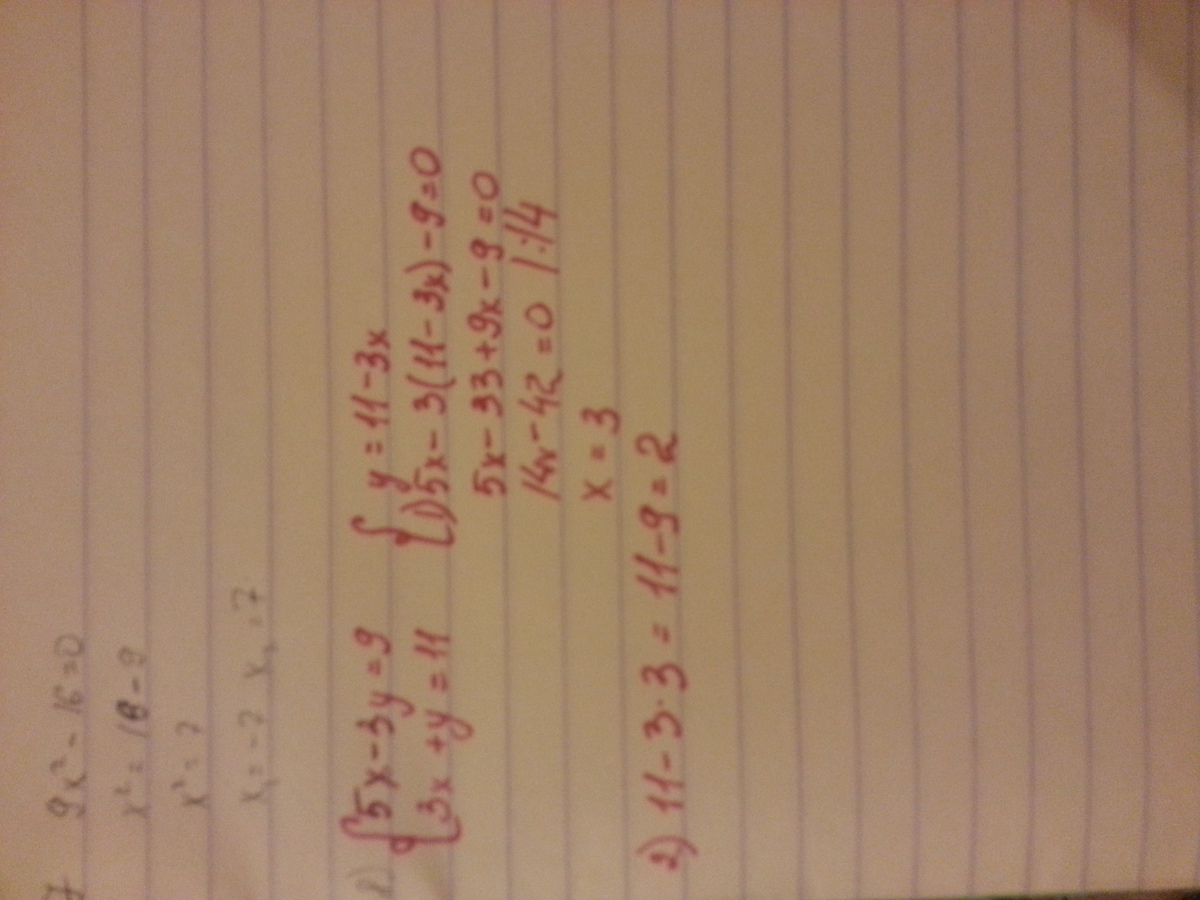 7 9x² - 16 = 0
x² = 16 - 9
x² = 7
x₁ = -7 x₂ = 7
8) {5x - 3y = 9 { y = 11 - 3x
{3x + y = 11 {1) 5x - 3(11 - 3x) - 9 = 0
5x - 33 + 9x - 9 = 0
14x - 42 = 0 | : 14
x = 3
2) 11 - 3 · 3 = 11 - 9 = 2